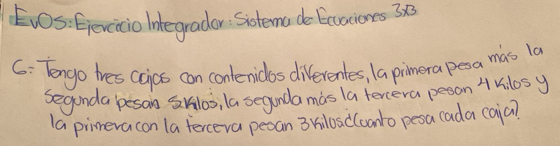 EvOS: Ejercicio Integrador: Sistema de Ecuaciones 3x3
6= Tengo tres cajas con contenidos diferentes, la primera pesa más la
segunda pesan 5 kilos, la segunda más la tercera pesan 4 kilos y
la primera con la tercera pesan 3 kilos ¿Cuanto pesa cada caja?